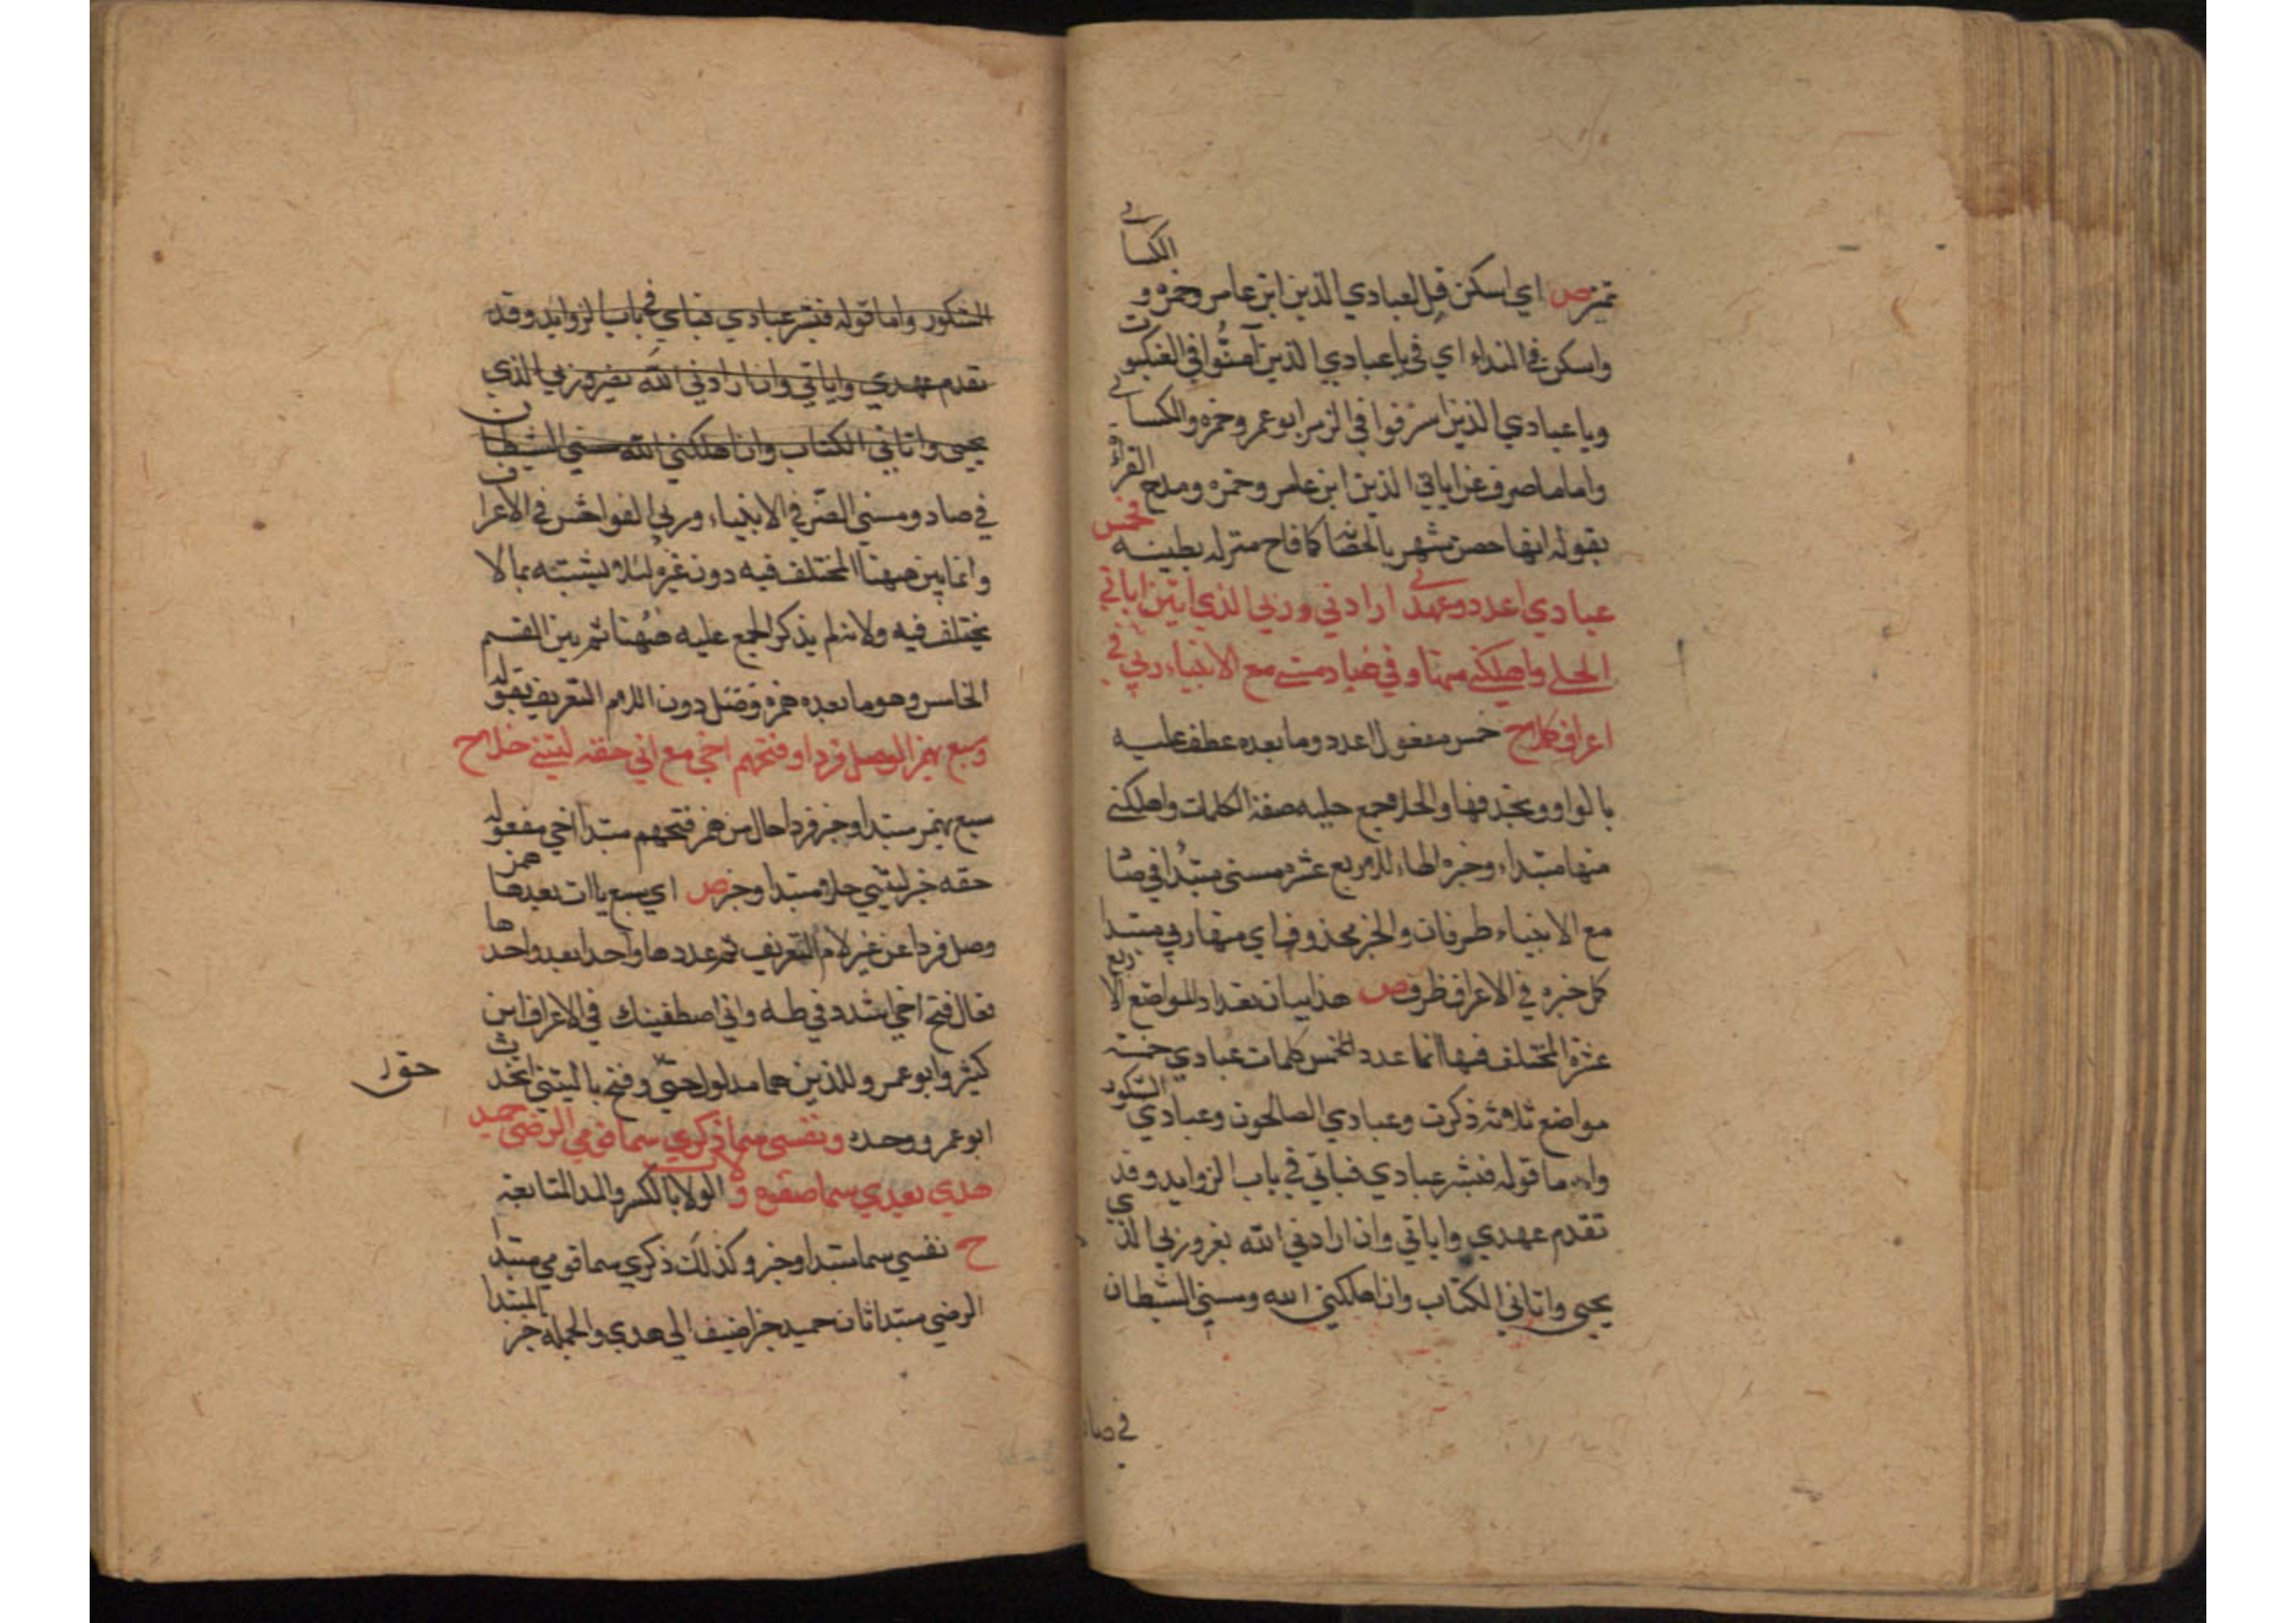 تميز ص اي اسكن قل لعبادي الذين ابن عامر وحمزه و الكسائي
واسكن في النداء اي في يا عبادي الذين آمنُوا في العنكبوت
ويا عبادي الذين اسرفوا في الزمر ابو عمرو وحمزه والكسائي
واما ما صرف عن اياتي الذين ابن عامر وحمزه ومدح القراة
بقوله انها حصن شهر بالحصانه كما فاح منزله بطيبه فخمس
عبادي اعدد وعهدي ارادني وربي الذي اتين اياتي
الحلي واهلكني منها وفي صاد مسني مع الانبياء ربي في
اعراف كملا ح خمس مفعول اعدد وما بعده عطف عليه
بالواو وبحذفها والحلا جمع حليه صفة الكلمات واهلكني
منها مبتداء وخبره الهاء للاربع عشره مسني مبتدا في صاد
مع الانبياء ظرفان والخبر محذوف اي منها ربي مبتدا
كمل خبره في الاعراف ظرف ص هذا بيان تعداد المواضع الاربع
عشرة المختلف فيها انما عدد الخمس كلمات عبادي خمسة
مواضع ثلاثه ذكرت وعبادي الصالحون وعبادي الشكور
واما ما قوله فبشر عبادي فياتي في باب الزوايد وقد
تقدم عهدي واياتي وان ارادني الله بضر وربي الذي
يحيي واتاني الكتاب وان اهلكني الله ومسني الشيطان
في صاد
الشكور واما قوله فبشر عبادي فياتي في باب الزوايد وقد
تقدم عهدي واياتي وان ارادني الله بضر وربي الذي
يحيي واتاني الكتاب وان اهلكني الله مسني الشيطان
في صاد ومسني الضر في الانبياء وربي الفواحش في الاعراف
وانما بين ههنا المختلف فيه دون غيره لئلا يشتبه بما لا
يختلف فيه ولانه لم يذكر المجمع عليه ههنا ثم بين القسم
الخامس وهو ما بعده همزه وصل دون اللام التعريف بقوله
وسبع بهمز الوصل فردا وفتحهم اخي مع اني حقه ليتني حلا ح
سبع بهمز مبتدا وخبر فردا حال من همز فتحهم مبتدا اخي مفعوله
حقه خبر ليتني حلا مبتدا وخبر ص اي سبع ياات بعدها همز
وصل فردا عن غير لام التعريف ثم عددها واحدا بعد واحد
فقال فتح اخي اشدد في طه واني اصطفيتك في الاعراف ابن
كثير وابو عمرو للذين هما مدلول حق وفتح يا ليتني اتخذت
حق
ابو عمرو وحده ونفسي سما ذكري سما قومي الرضى حميد
هدي بعدي سما صفوه ولا الولا بالكسر والمد المتابعة
ح نفسي سما مبتدا وخبر وكذلك ذكري سما قومي مبتدا
الرضي مبتدا ثان حميد خبر اضيف الى هدي والجملة خبر المبتدا